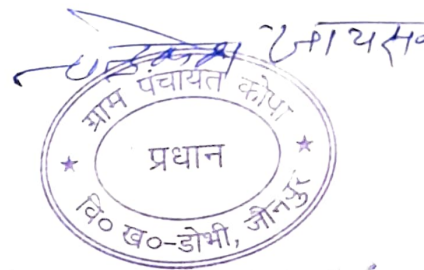 जायसव
ग्राम पंचायत कोपा
प्रधान
वि० ख०-डोभी, जौनपुर